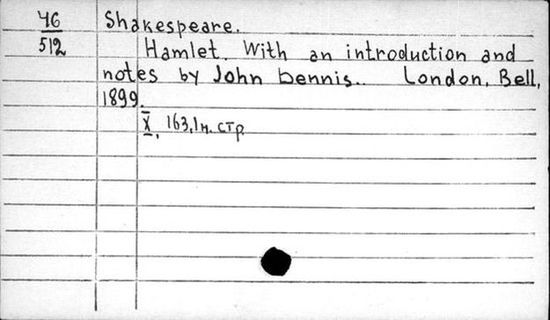 46 Shakespeare.
512 Hamlet. With an introduction and
notes by John Dennis.. London, Bell,
1899.
X, 163, 1 н. стр